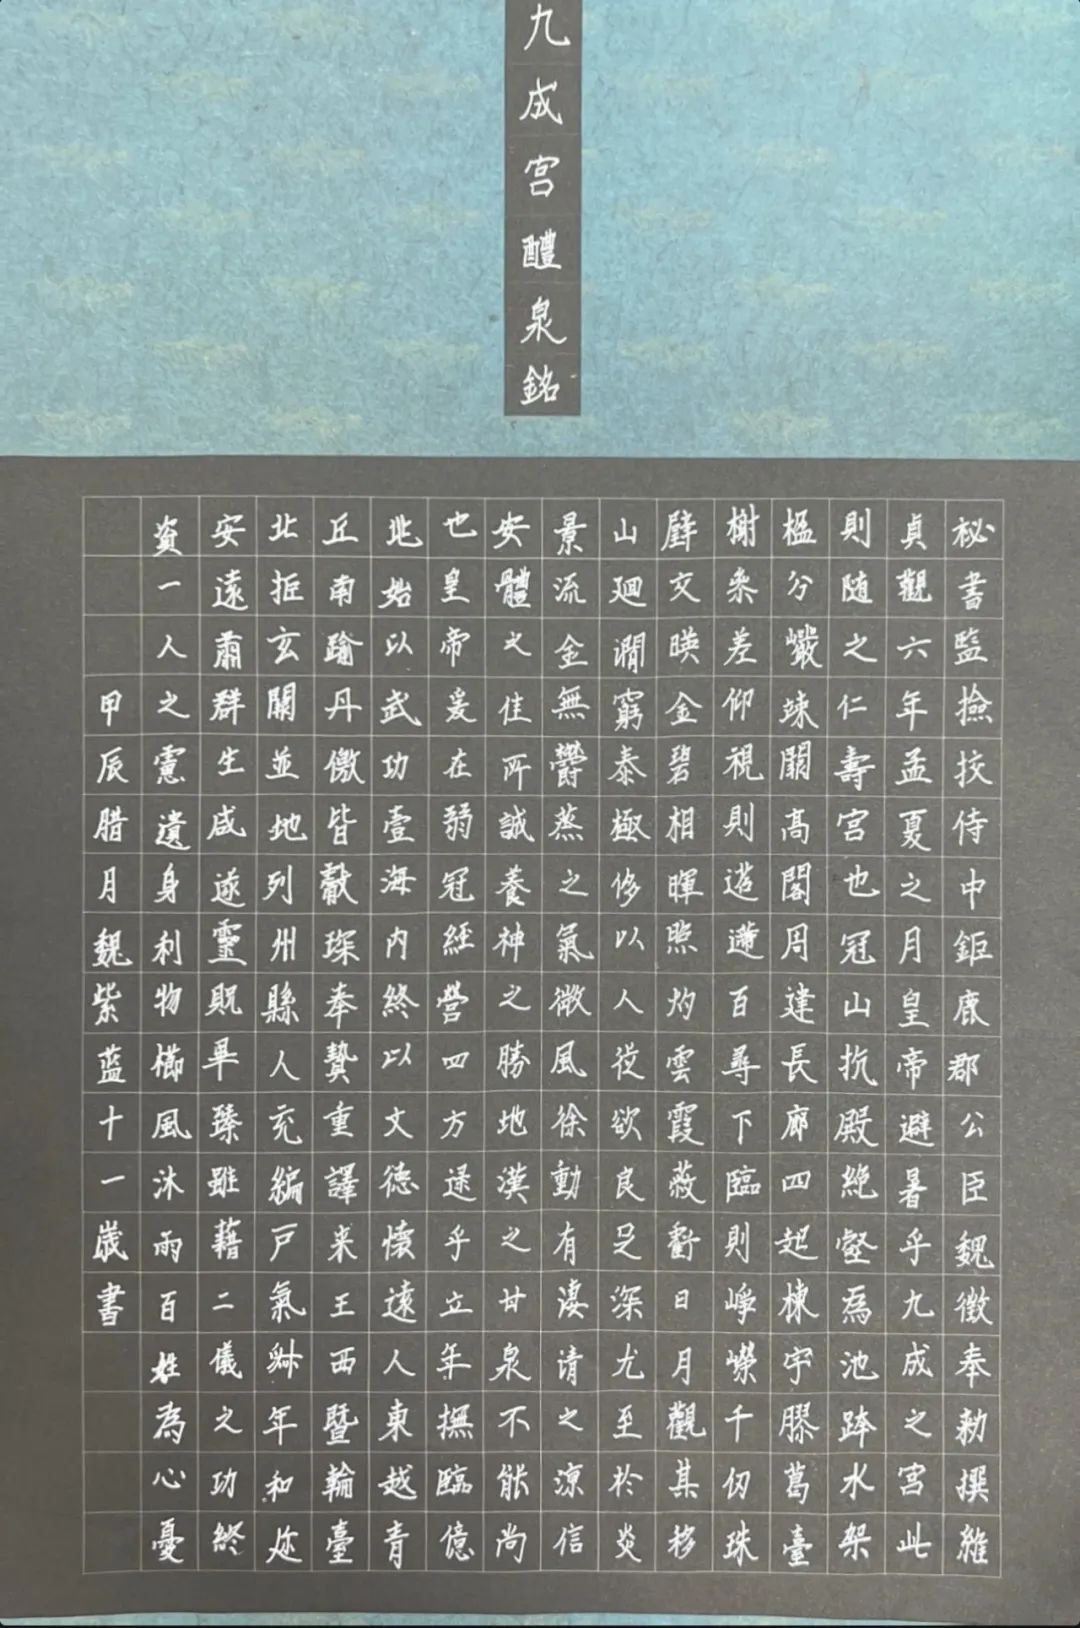 九成宮醴泉銘
秘書監撿挍侍中鉅鹿郡公臣魏徵奉勑撰維
貞觀六年孟夏之月皇帝避暑乎九成之宮此
則随之仁壽宮也冠山抗殿絶壑為池跨水架
楹分巗竦闕高閣周建長廊四起棟宇膠葛臺
榭叅差仰視則迢遰百尋下臨則崢嶸千仞珠
璧交暎金碧相暉照灼雲霞蔽虧日月觀其移
山廻澗窮泰極侈以人從欲良足深尤至於炎
景流金無鬱蒸之氣微風徐動有淒清之涼信
安體之佳所誠養神之勝地漢之甘泉不能尚
也皇帝爰在弱冠經營四方逮乎立年撫臨億
兆始以武功壹海内終以文德懷遠人東越青
丘南踰丹儌皆獻琛奉贄重譯来王西暨輪臺
北拒玄闕並地列州縣人充編戶氣淑年和迩
安遠肅群生咸遂靈貺畢臻雖藉二儀之功終
資一人之慮遺身利物櫛風沐雨百姓為心憂
甲辰腊月魏紫蓝十一歲書